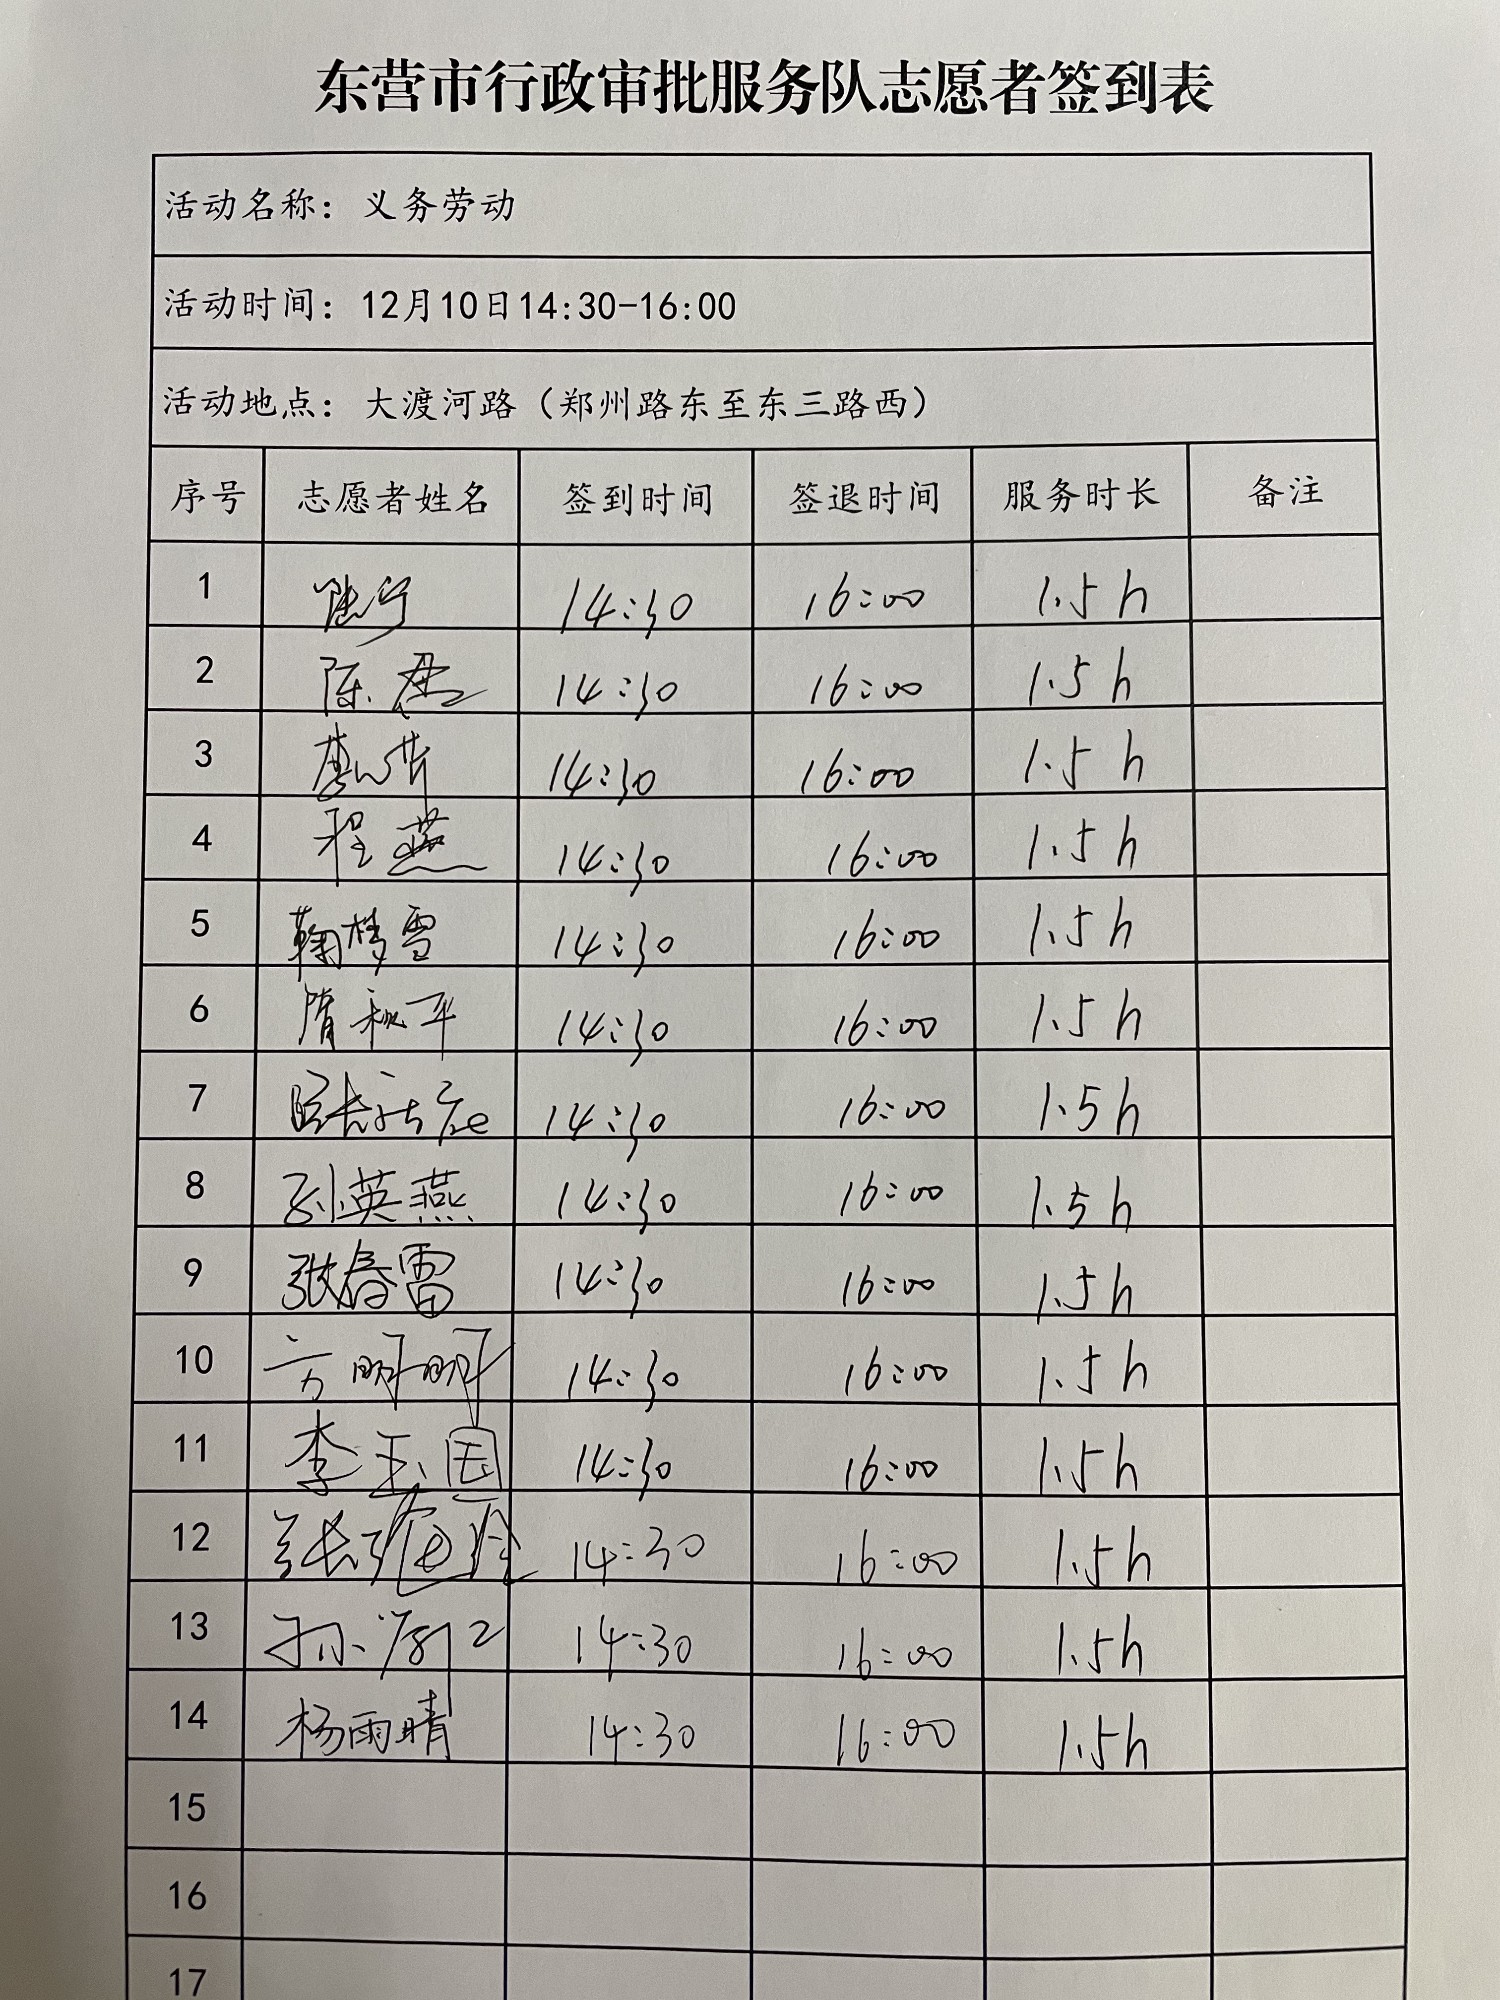 东营市行政审批服务队志愿者签到表
活动名称：义务劳动
活动时间：12月10日14:30-16:00
活动地点：大渡河路（郑州路东至东三路西）
序号 志愿者姓名 签到时间 签退时间 服务时长 备注
1 14:30 16:00 1.5h
2 陈 14:30 16:00 1.5h
3 14:30 16:00 1.5h
4 程燕 14:30 16:00 1.5h
5 鞠梦雪 14:30 16:00 1.5h
6 隋秋平 14:30 16:00 1.5h
7 14:30 16:00 1.5h
8 孙英燕 14:30 16:00 1.5h
9 张春雷 14:30 16:00 1.5h
10 方明明 14:30 16:00 1.5h
11 李玉国 14:30 16:00 1.5h
12 14:30 16:00 1.5h
13 孙 14:30 16:00 1.5h
14 杨雨晴 14:30 16:00 1.5h
15
16
17